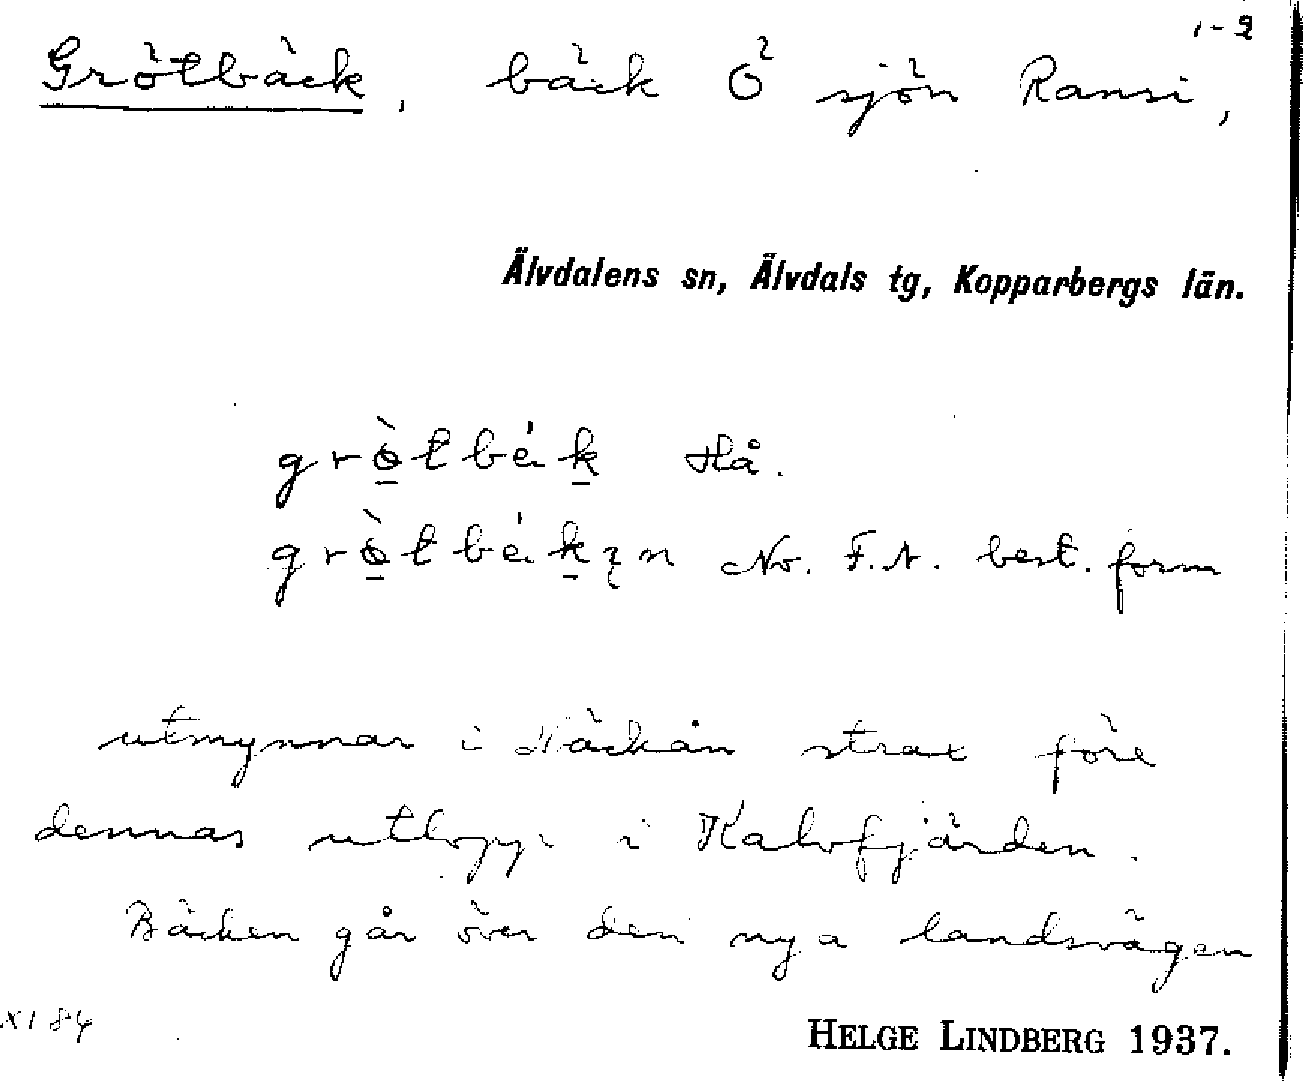 1-2
Grötbäck, bäck Ö sjön Ransi,
Älvdalens sn, Älvdals tg, Kopparbergs län.
grò̱tbäḵ Hå.
grò̱tbäḵın No. F.N. best. form
utmynnar i Näckån strax före
dennas utlopp i Kalvfjärden.
Bäcken går över den nya landsvägen
XI 84
HELGE LINDBERG 1937.